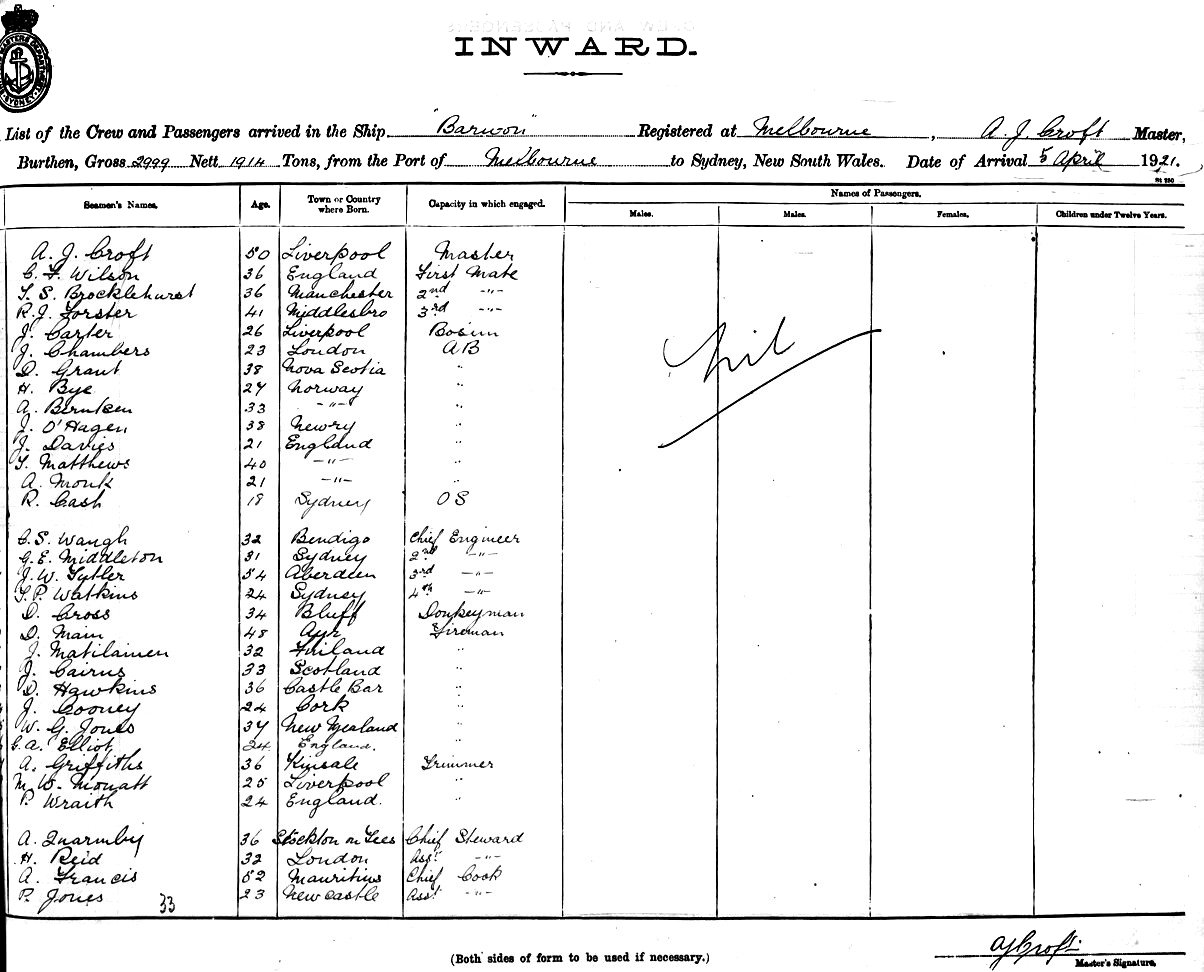 INWARD.
List of the Crew and Passengers arrived in the Ship "Barwon" Registered at Melbourne, A. J. Croft Master,
Burthen, Gross 2999 Nett 1914 Tons, from the Port of Melbourne to Sydney, New South Wales. Date of Arrival 5 April 1921.
Names of Passengers.
Seamen's Names. Age. Town or Country where Born. Capacity in which engaged. Males. Males. Females. Children under Twelve Years.
A. J. Croft 50 Liverpool Master
C. F. Wilson 36 England First Mate
T. S. Brocklehurst 36 Manchester 2nd -"-
R. J. Forster 41 Middlesbro 3rd -"-
J. Carter 26 Liverpool Bosun
J. Chambers 23 London AB
D. Grant 38 Nova Scotia "
H. Bye 27 Norway "
A. Berntsen 33 -"- "
J. O'Hagen 38 Newry "
J. Davies 21 England "
T. Matthews 40 -"- "
A. Monk 21 -"- "
R. Cash 18 Sydney OS
nil
C. S. Waugh 32 Bendigo Chief Engineer
G. E. Middleton 31 Sydney 2nd -"-
J. W. Tytler 54 Aberdeen 3rd -"-
T. P. Watkins 24 Sydney 4th -"-
D. Cross 34 Bluff Donkeyman
D. Main 48 Ayr Fireman
J. Matilainen 32 Finland "
J. Cairns 33 Scotland "
D. Hawkins 36 Castle Bar "
J. Cooney 24 Cork "
W. G. Jones 37 New Zealand "
G. A. Elliot 24 England. "
A. Griffiths 36 Kinsale Trimmer
M. W. Mouatt 25 Liverpool "
P. Wraith 24 England. "
A. Quarmby 36 Stockton on Tees Chief Steward
H. Reid 32 London Asst -"-
A. Francis 52 Mauritius Chief Cook
P. Jones 23 Newcastle Asst -"-
33
A J Croft.
(Both sides of form to be used if necessary.) Master's Signature.